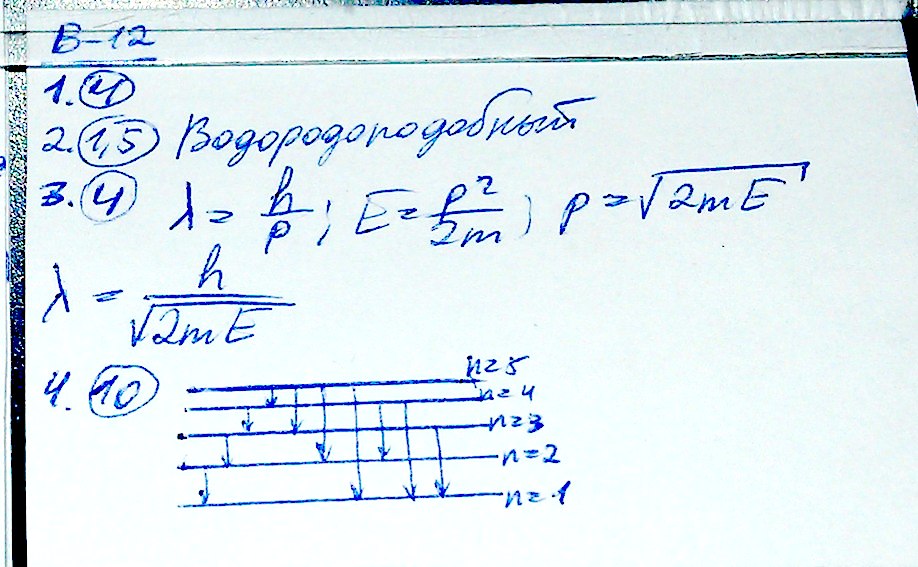 В-12
1. 4
2. 1,5 Водородоподобный
3. 4 λ = h/p ; E = p²/2m ; p = √2mE
λ = h/√2mE
4. 10 n=5
n=4
n=3
n=2
n=1